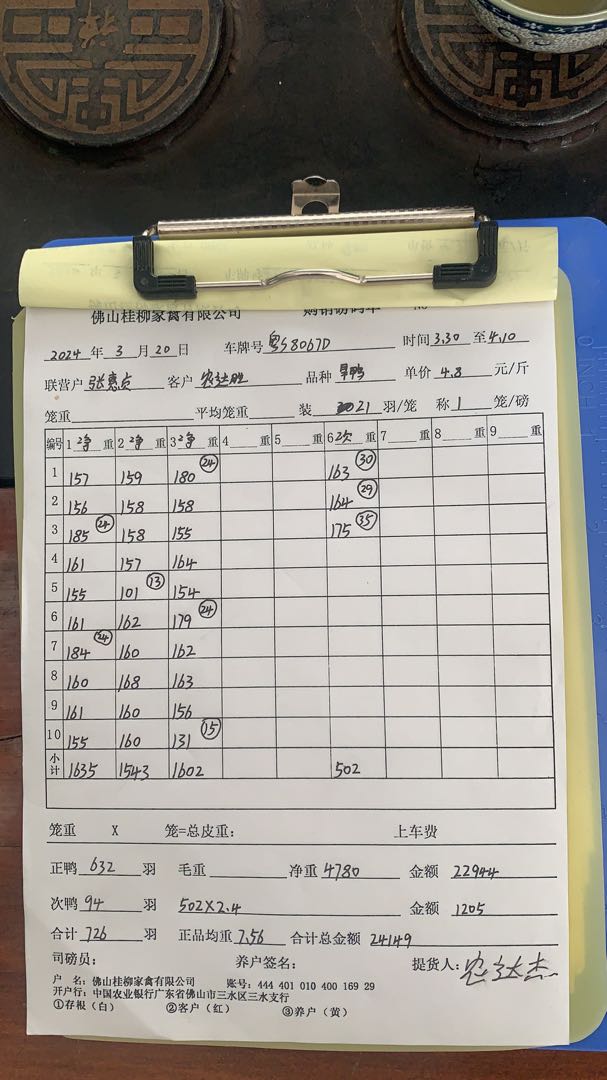 佛山桂柳家禽有限公司 购销磅码单 No
2024 年 3 月 20 日 车牌号 粤S8067D 时间 3.30 至 4.10
联营户 张惠贞 客户 农达胜 品种 旱鸭 单价 4.8 元/斤
笼重 平均笼重 装 21 羽/笼 称 1 笼/磅
编号 1 净 重 2 净 重 3 净 重 4 重 5 重 6 次 重 7 重 8 重 9 重
1 157 159 180 (24) 163 (30)
2 156 158 158 164 (29)
3 185 (24) 158 155 175 (35)
4 161 157 164
5 155 101 (13) 154
6 161 162 179 (24)
7 184 (24) 160 162
8 160 168 163
9 161 160 156
10 155 160 131 (15)
小计 1635 1543 1602 502
笼重 X 笼=总皮重: 上车费
正鸭 632 羽 毛重 净重 4780 金额 22944
次鸭 94 羽 502X2.4 金额 1205
合计 726 羽 正品均重 7.56 合计总金额 24149
司磅员: 养户签名: 提货人: 农达杰
户 名: 佛山桂柳家禽有限公司 账号: 444 401 010 400 169 29
开户行: 中国农业银行广东省佛山市三水区三水支行
①存根（白） ②客户（红） ③养户（黄）